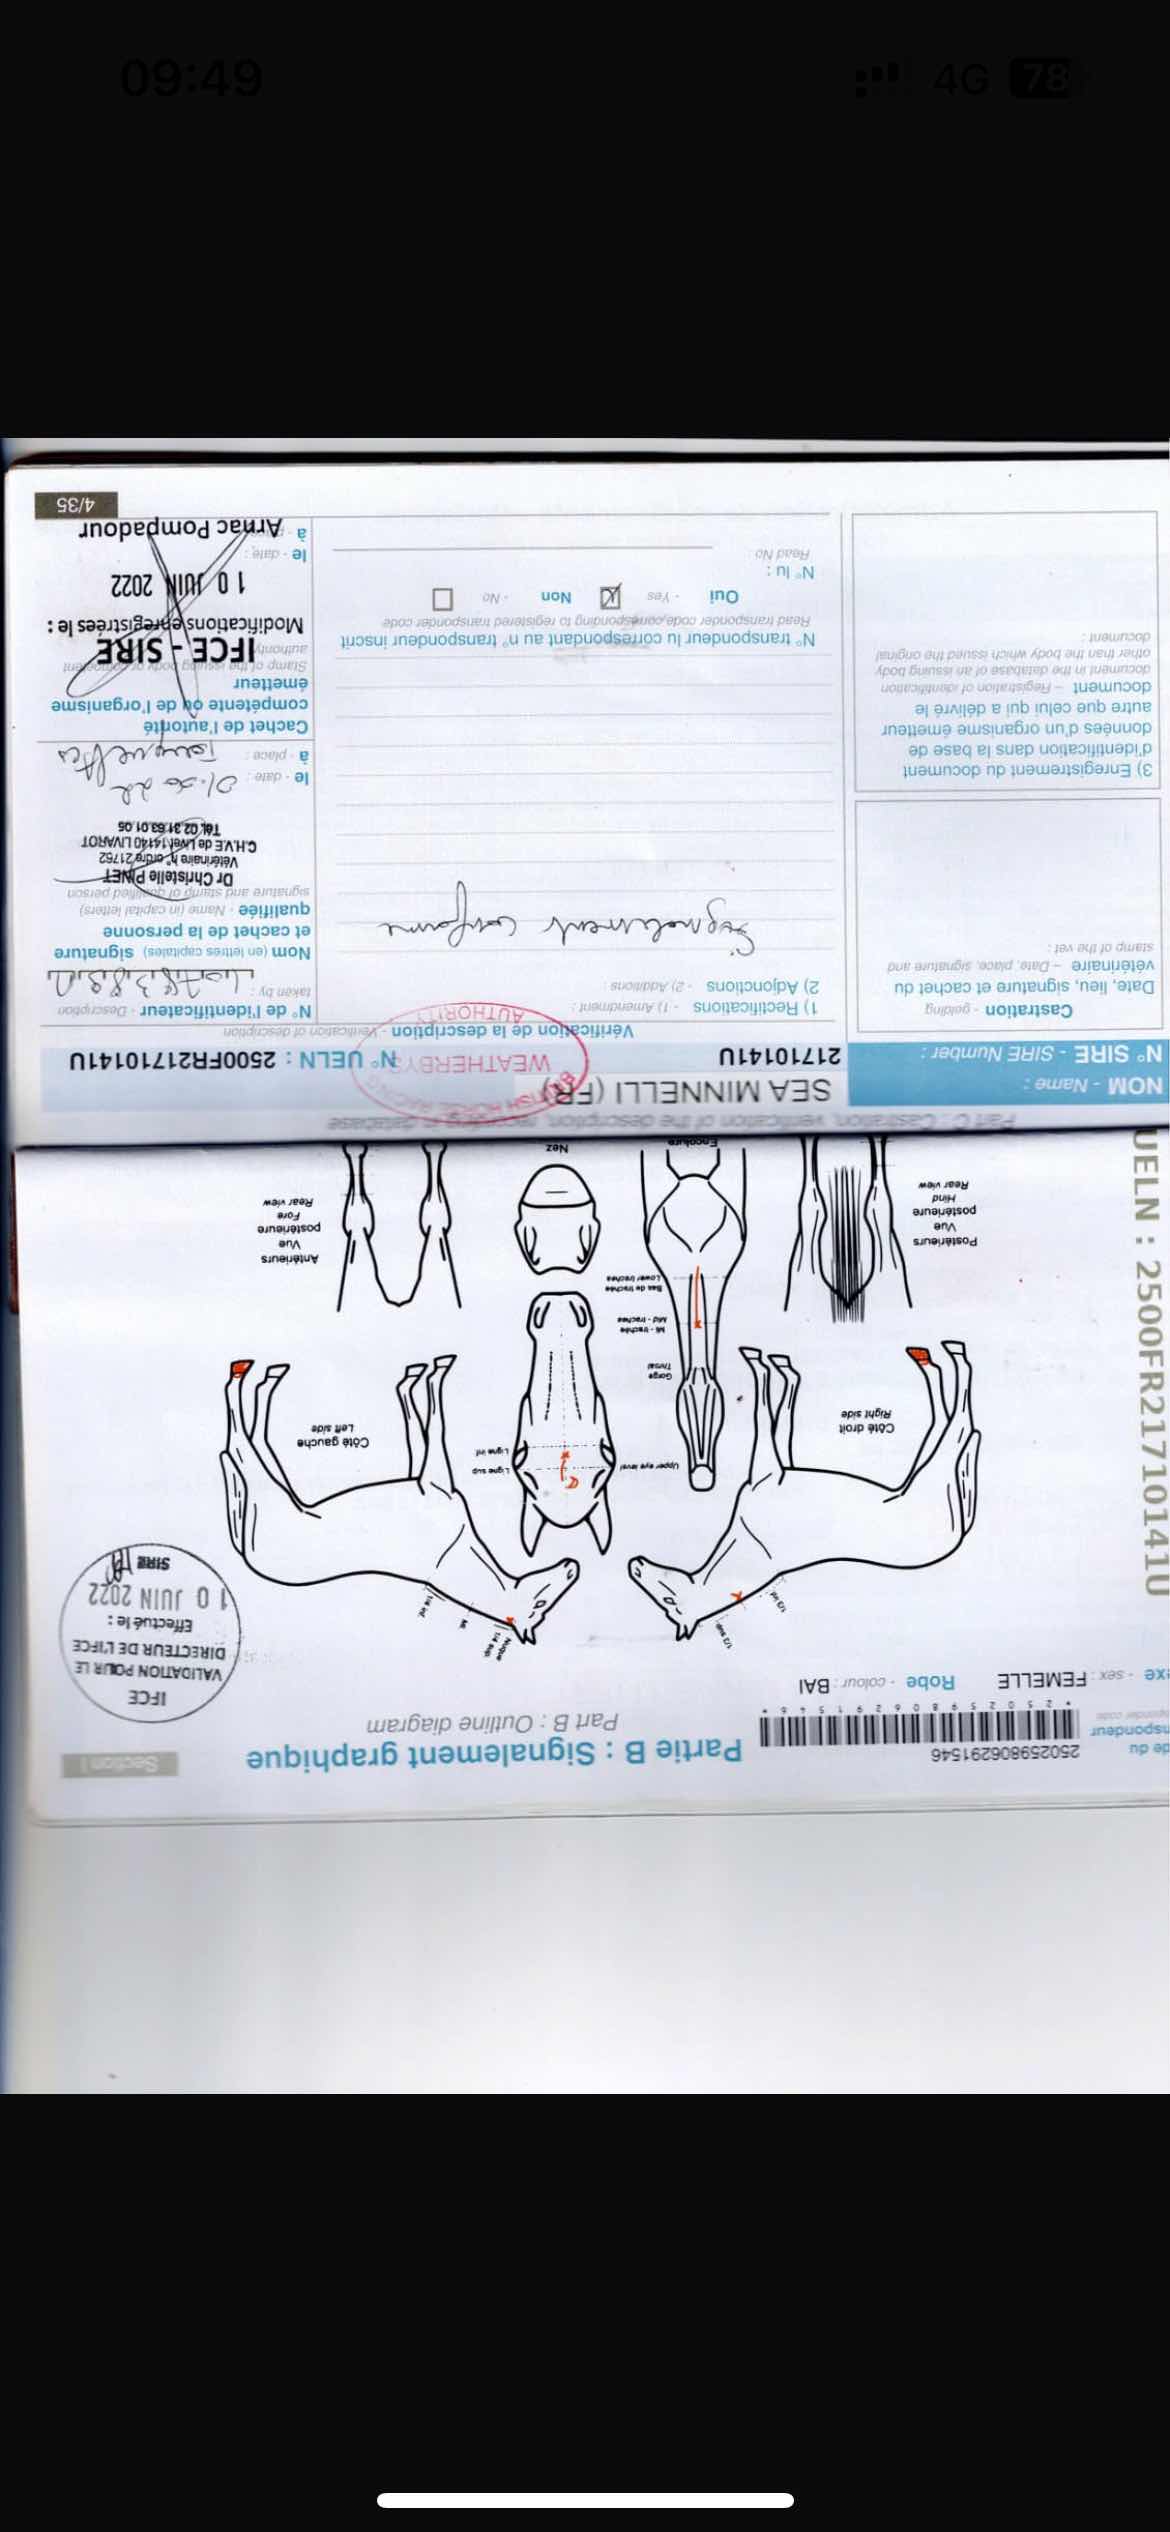 09:49
4G 78
Section I
Partie B : Signalement graphique
Part B : Outline diagram
de du
nspondeur
250259806291546
* 2 5 0 2 5 9 8 0 6 2 9 1 5 4 6 *
exe - sex : FEMELLE
Robe - colour : BAI
IFCE
VALIDATION POUR LE
DIRECTEUR DE L'IFCE
Effectué le :
10 JUIN 2022
SIRE
UELN : 2500FR21710141U
1/3 sup.
1/3 inf.
Nuque
1/4 sup.
Mi.
1/4 inf.
Côté droit
Right side
Upper eye level
Ligne sup
Ligne inf
Côté gauche
Left side
Gorge
Throat
Mi - trachée
Mid - trachea
Bas de trachée
Lower trachea
Postérieurs
Vue
postérieure
Hind
Rear view
Encolure
Nez
Antérieurs
Vue
postérieure
Fore
Rear view
Part C : Castration, verification of the description, recording in database
NOM - Name :
SEA MINNELLI (FR)
N° SIRE - SIRE Number :
21710141U
N° UELN : 2500FR21710141U
BRITISH HORSE RACING
WEATHERBYS
AUTHORITY
Castration - gelding
Date, lieu, signature et cachet du
vétérinaire – Date, place, signature and
stamp of the vet :
3) Enregistrement du document
d'identification dans la base de
données d'un organisme émetteur
autre que celui qui a délivré le
document – Registration of identification
document in the database of an issuing body
other than the body which issued the original
document :
Vérification de la description - Verification of description
1) Rectifications - 1) Amendment :
2) Adjonctions - 2) Additions :
Signalement conforme
N° transpondeur lu correspondant au n° transpondeur inscrit
Read transponder code corresponding to registered transponder code
Oui - Yes
Non - No
N° lu :
Read No :
N° de l'identificateur - Description
taken by :
Nom (en lettres capitales) signature
et cachet de la personne
qualifiée - Name (in capital letters)
signature and stamp of qualified person
Dr Christelle PINET
Vétérinaire n° ordre 21762
C.H.V.E de Livet 14140 LIVAROT
Tél. 02 31 63 01 05
le - date :
à - place :
Cachet de l'autorité
compétente ou de l'organisme
émetteur
Stamp of the issuing body or competent
authority
IFCE - SIRE
Modifications enregistrées le :
10 JUIN 2022
le - date :
à - place
Arnac Pompadour
4/35